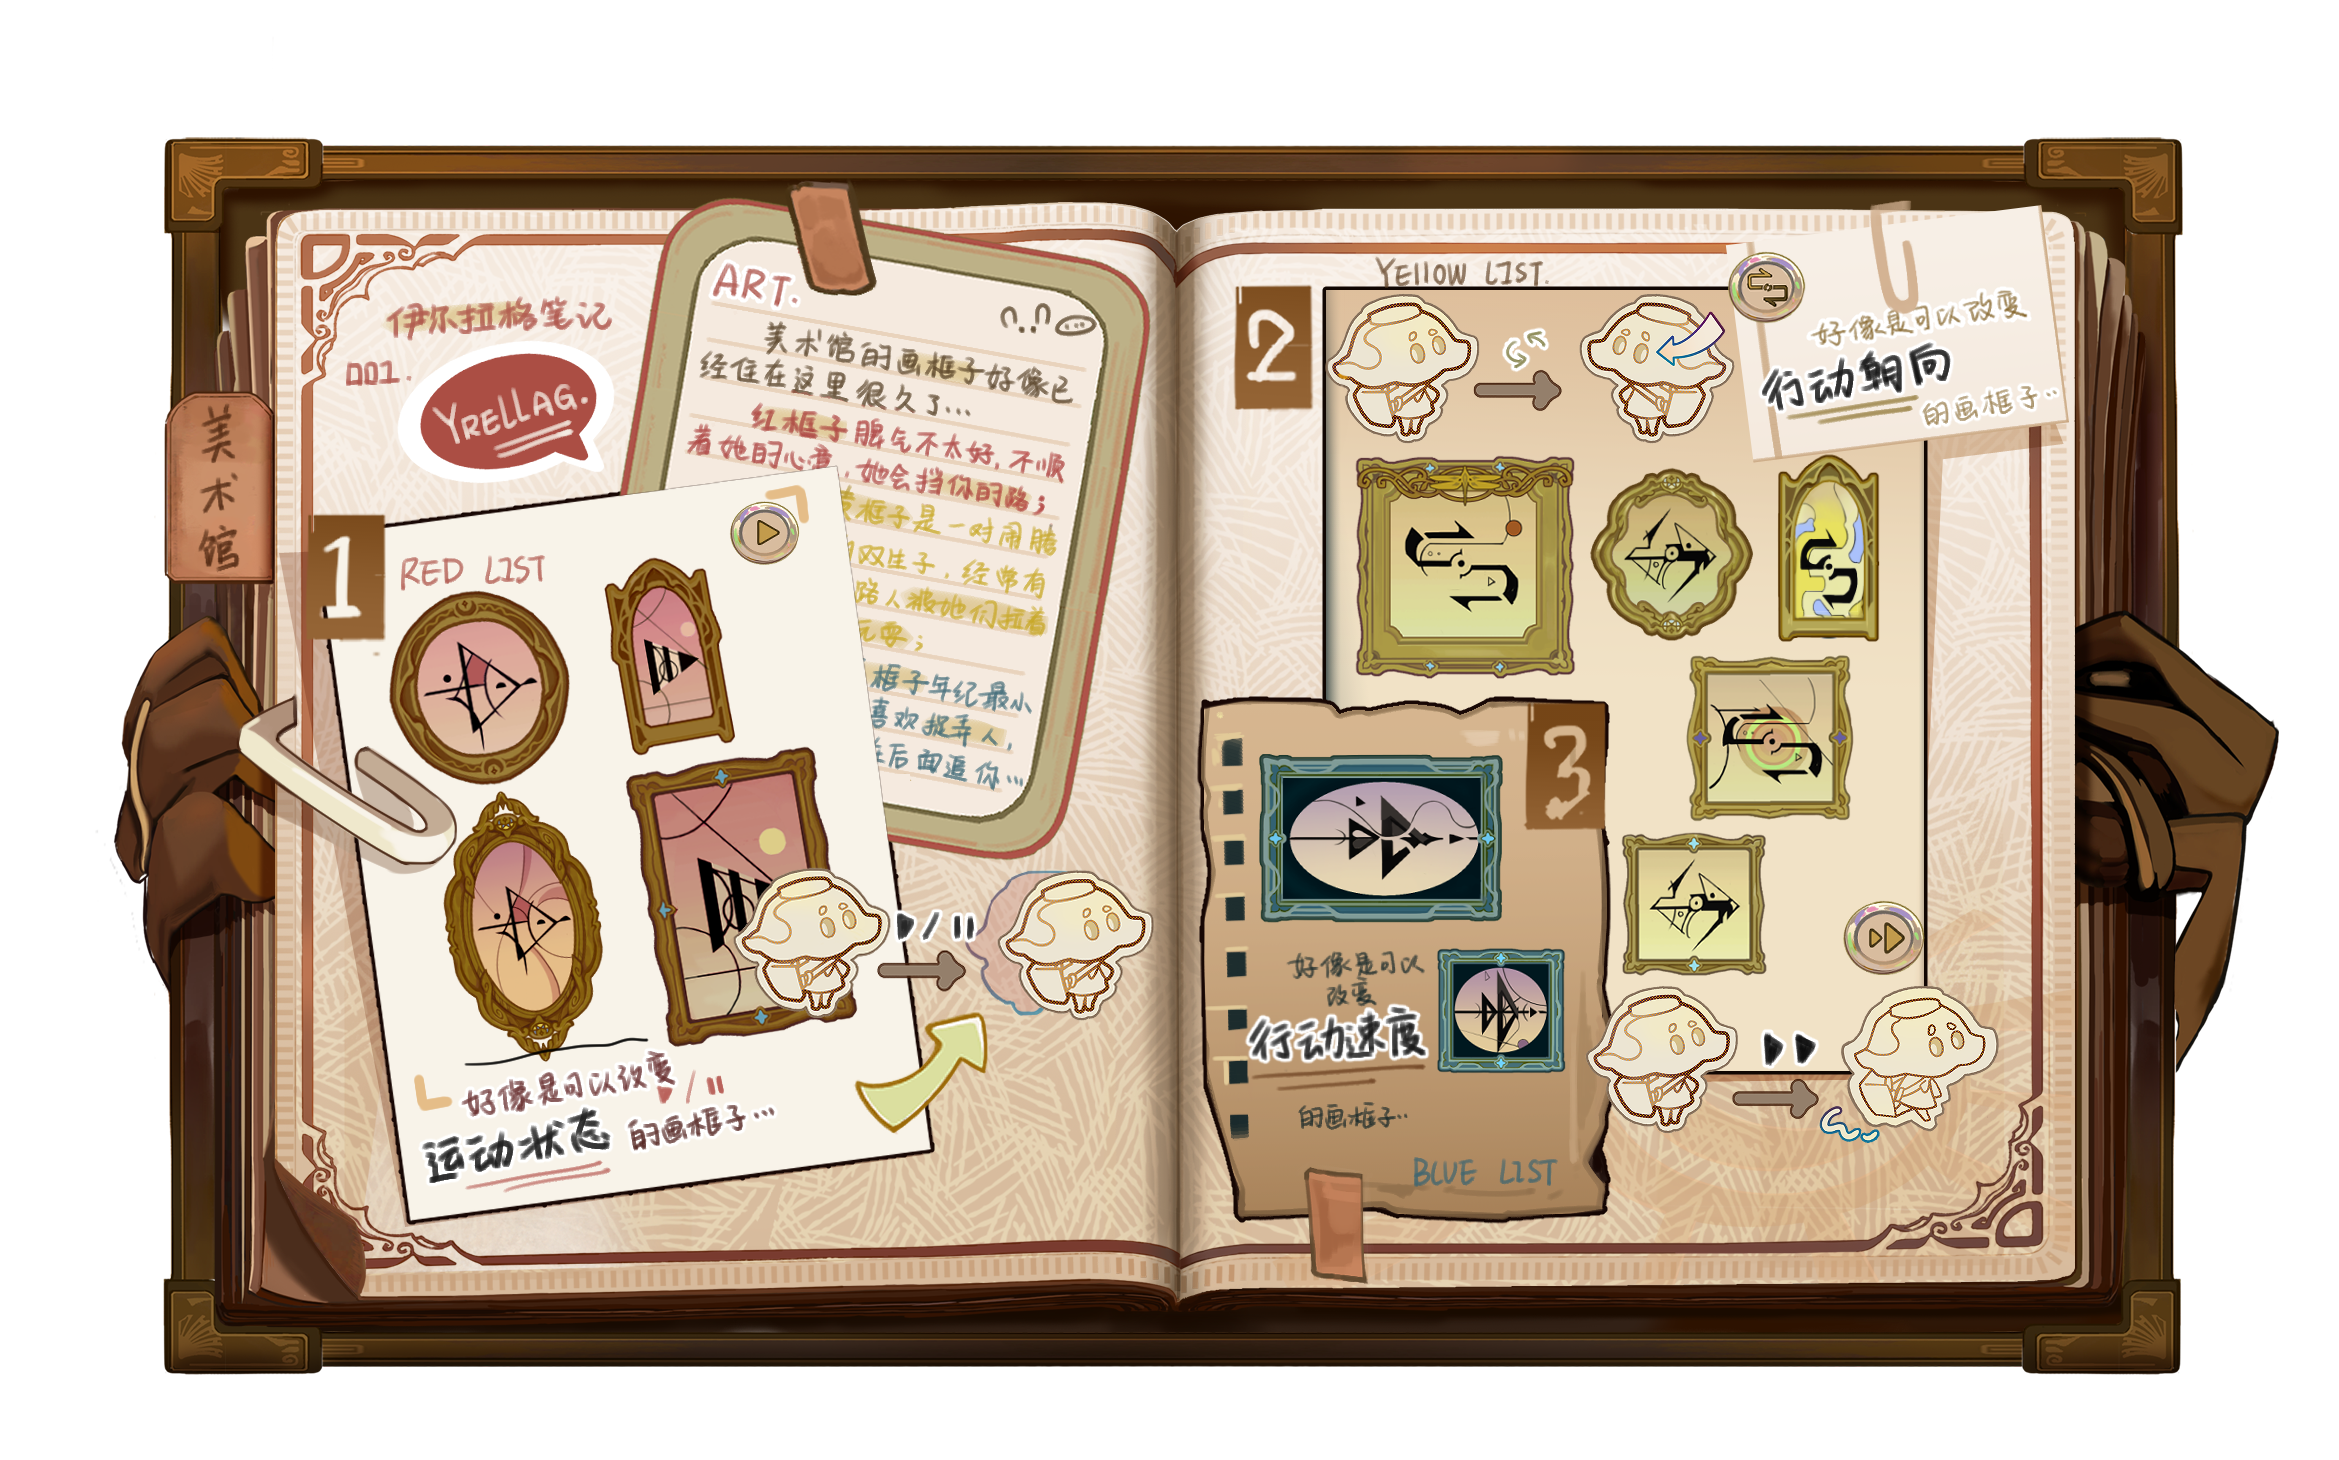 美术馆
伊尔拉格笔记
001.
YRELLAG.
ART.
美术馆的画框子好像已
经住在这里很久了...
红框子脾气不太好,不顺
着她的心意,她会挡你的路;
框子是一对闹腾
双生子,经常有
路人被她们拉着
玩耍;
框子年纪最小
喜欢捉弄人,
后面追你...
1
RED LIST
好像是可以改变
运动状态 的画框子...
2
YELLOW LIST.
好像是可以改变
行动朝向
的画框子..
3
好像是可以
改变
行动速度
的画框子..
BLUE LIST